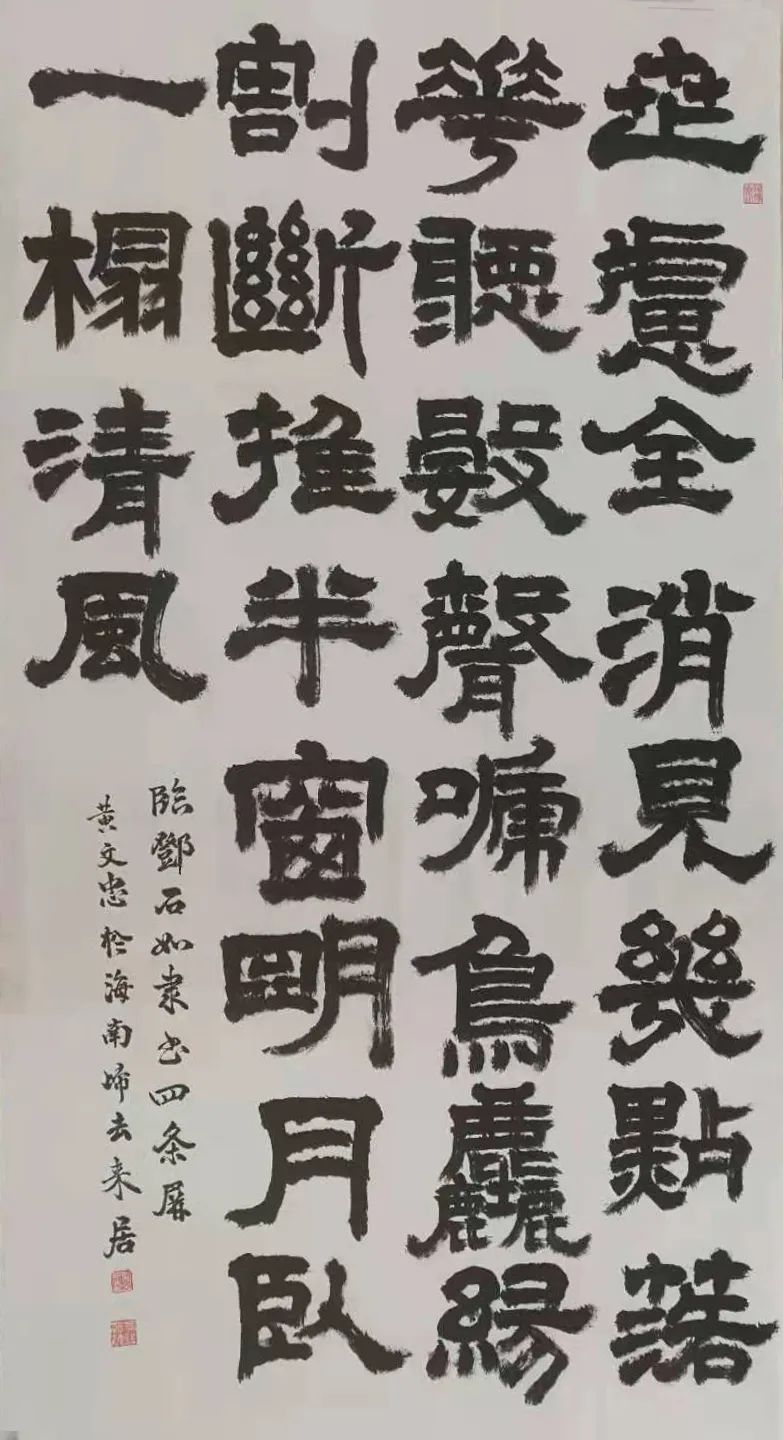 世慮全消見幾點落
華聽數聲嗁鳥塵緣
割斷推半窗明月臥
一榻清風
臨鄧石如隶书四条屏
黄文忠於海南歸去来居